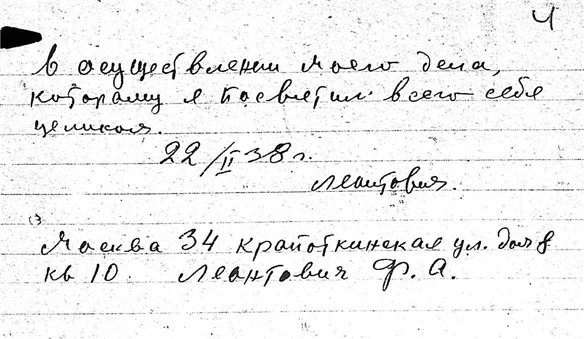 4
в осуществлении моего дела,
которому я посвятил всего себя
целиком.
22/II 38 г.
Леонтович.
Москва 34 Кропоткинская ул. дом 8
кв 10. Леонтович Ф. А.